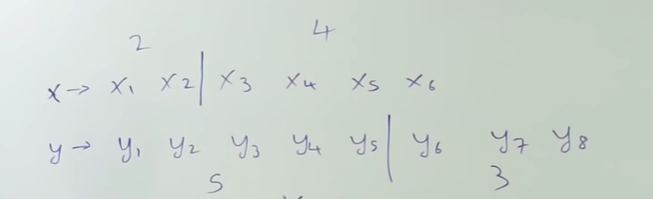 2 4
x → x₁ x₂ | x₃ x₄ x₅ x₆
y → y₁ y₂ y₃ y₄ y₅ | y₆ y₇ y₈
5 3